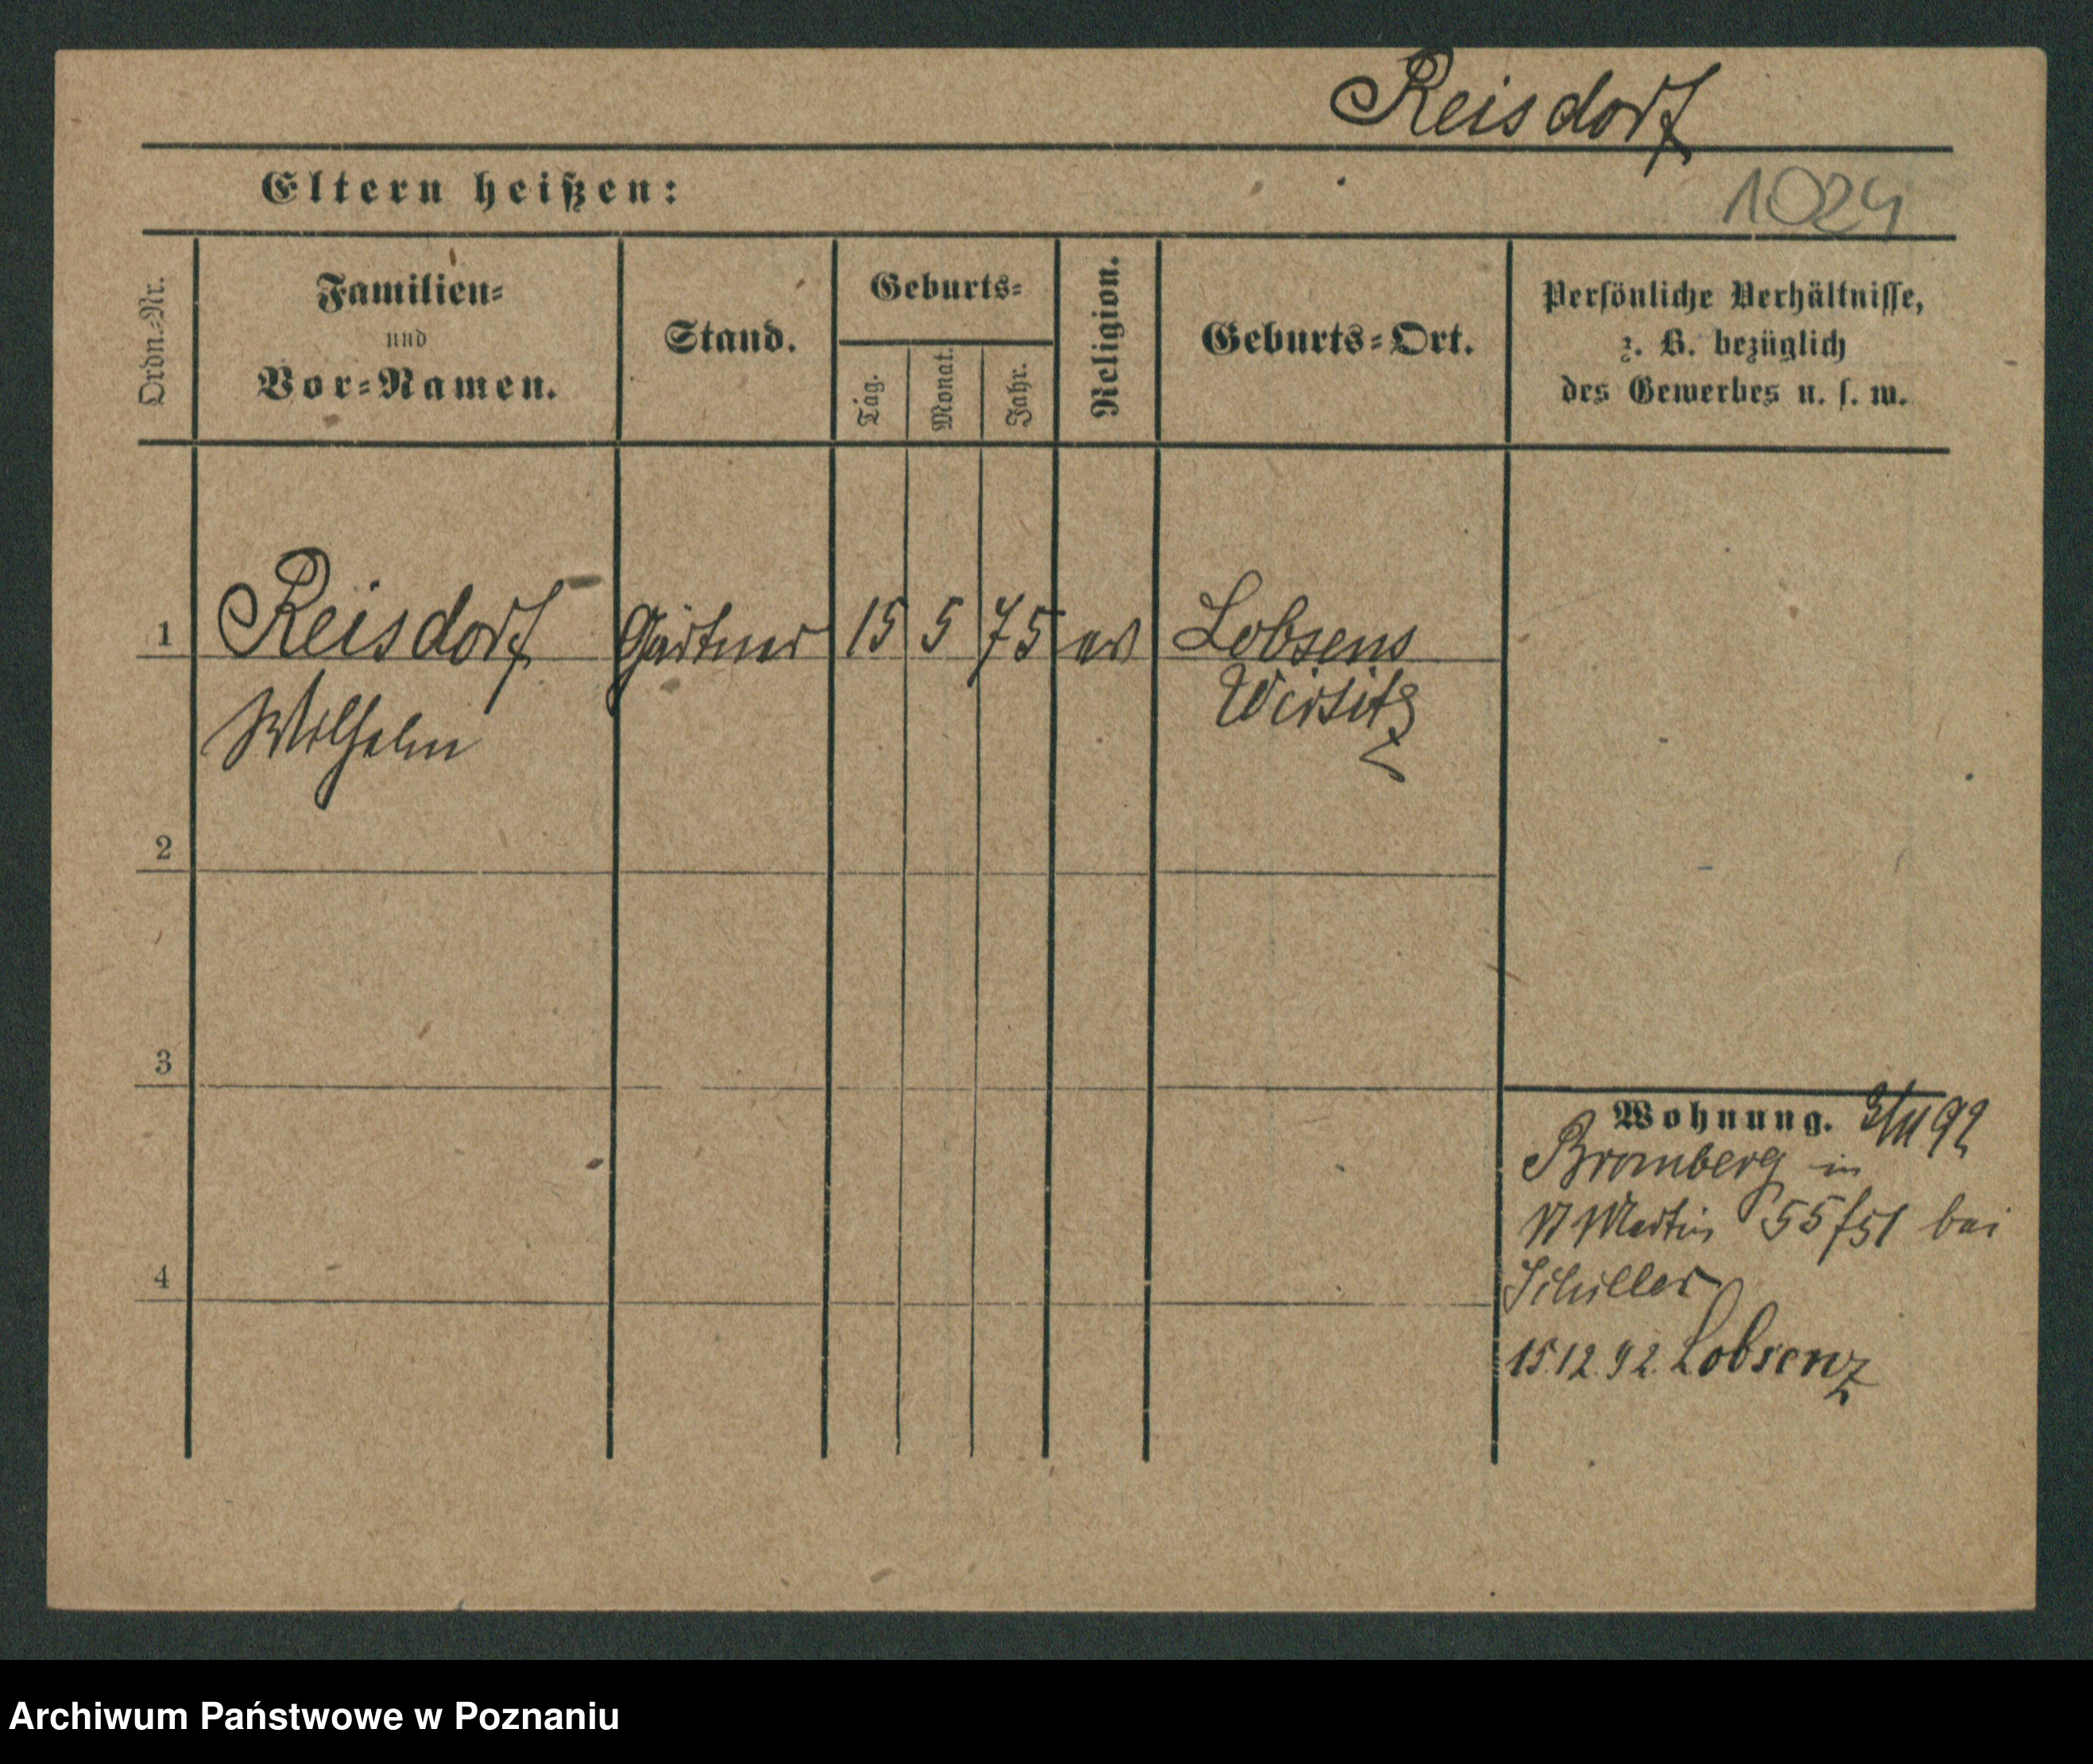 Reisdorf
Eltern heißen:
1024
Ordn.-Nr.
Familien-
und
Vor-Namen.
Stand.
Geburts-
Tag.
Monat.
Jahr.
Religion.
Geburts-Ort.
Persönliche Verhältnisse,
z. B. bezüglich
des Gewerbes u. s. w.
1 Reisdorf Gärtner 15 5 75 ev Lobsens
Wilhelm Wirsitz
2
3
4
Wohnung. 3/11 92
Bromberg in
Martin 55/51 bei
Schiller
15.12.92. Lobsenz
Archiwum Państwowe w Poznaniu